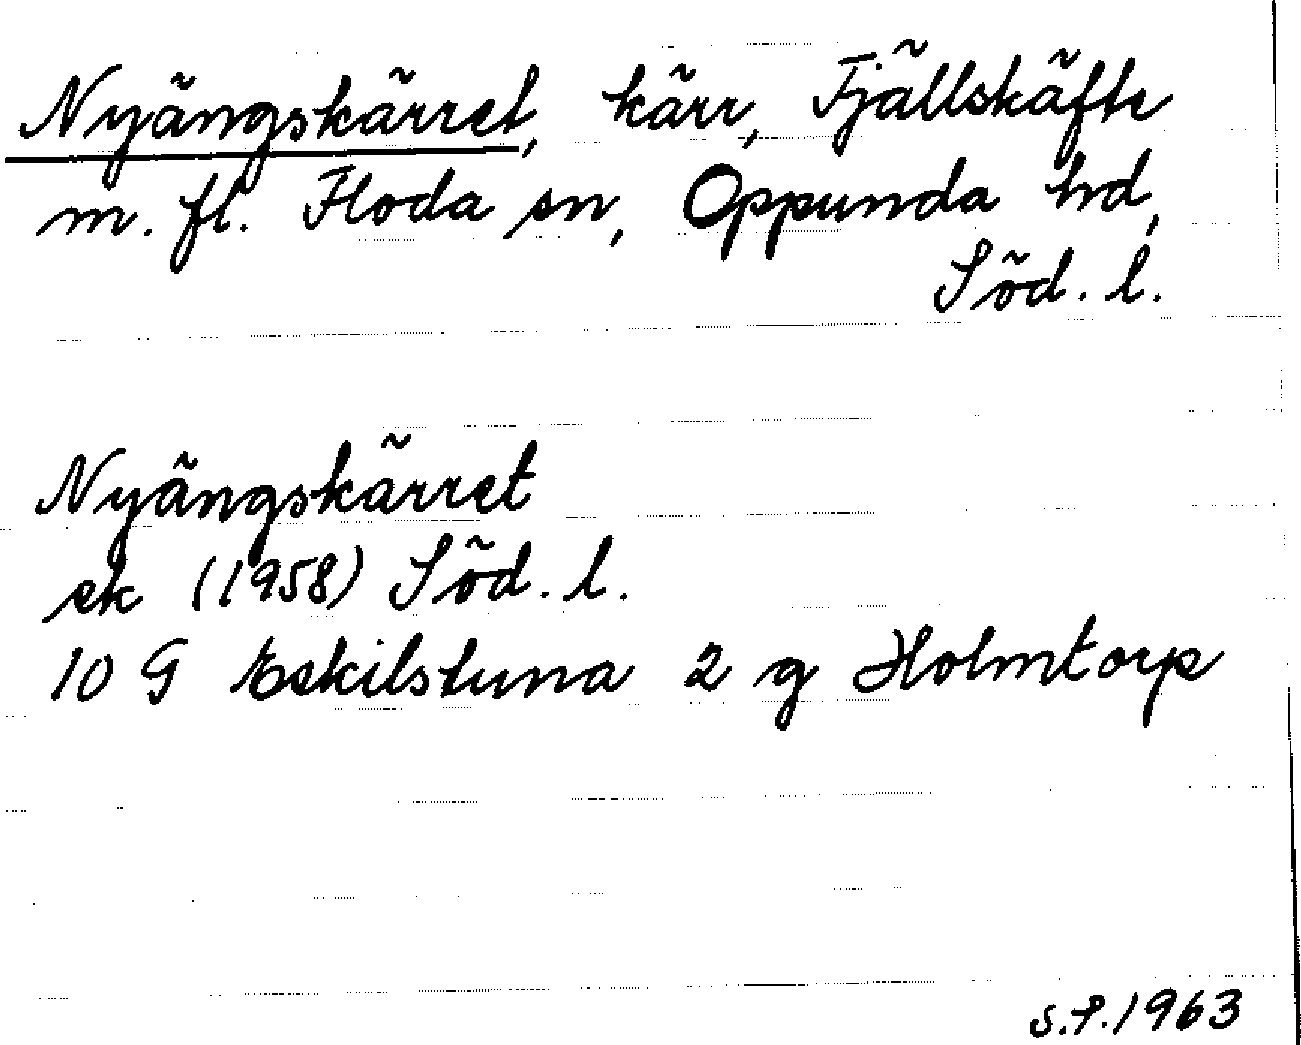 Nyängskärret, kärr, Fjällskäfte
m. fl. Floda sn, Oppunda hd,
Söd. l.
Nyängskärret
ek (1958) Söd. l.
10 G Eskilstuna 2 g Holmtorp
S.P. 1963